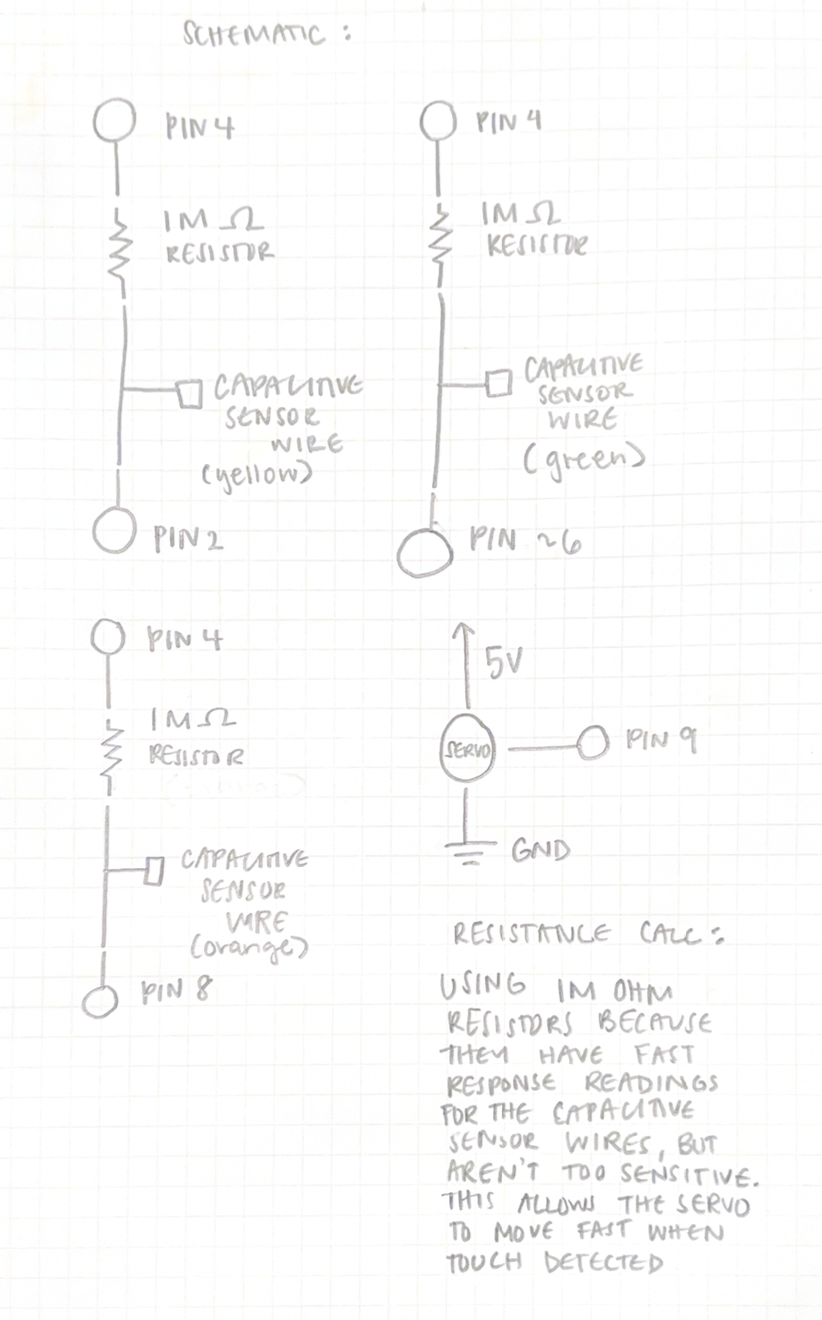 SCHEMATIC :
PIN 4
1M Ω
RESISTOR
CAPACITIVE
SENSOR
WIRE
(yellow)
PIN 2
PIN 4
1M Ω
RESISTOR
CAPACITIVE
SENSOR
WIRE
(green)
PIN ~6
PIN 4
1M Ω
RESISTOR
CAPACITIVE
SENSOR
WIRE
(orange)
PIN 8
5V
SERVO
PIN 9
GND
RESISTANCE CALC :
USING 1M OHM
RESISTORS BECAUSE
THEY HAVE FAST
RESPONSE READINGS
FOR THE CAPACITIVE
SENSOR WIRES, BUT
AREN'T TOO SENSITIVE.
THIS ALLOWS THE SERVO
TO MOVE FAST WHEN
TOUCH DETECTED